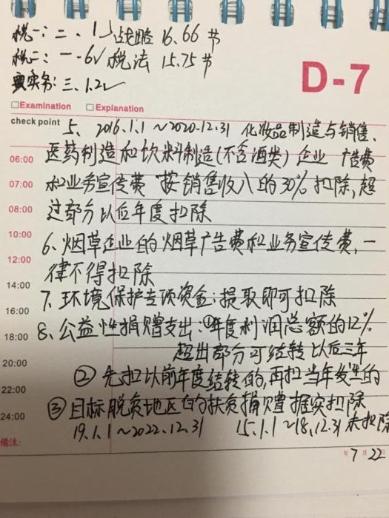 税一:二、1 战略 16.66节
税二:一-6 税法 15.75节
D-7
实务:三、1.2
Examination Explanation
check point
5、2016.1.1~2020.12.31 化妆品制造与销售、
06:00 医药制造和饮料制造(不含酒类)企业 广告费
07:00 和业务宣传费 按销售收入的30%扣除,超
08:00 过部分以后年度扣除
09:00 6、烟草企业的烟草广告费和业务宣传费,一
12:00 律不得扣除
14:00 7、环境保护专项资金:提取即可扣除
16:00 8、公益性捐赠支出:①年度利润总额的12%
18:00 超出部分可结转以后三年
20:00 ②先扣以前年度结转的,再扣当年发生的
22:00 ③目标脱贫地区的扶贫捐赠据实扣除
24:00 19.1.1~2022.12.31 15.1.1~18.12.31未扣除
备注:
7月22